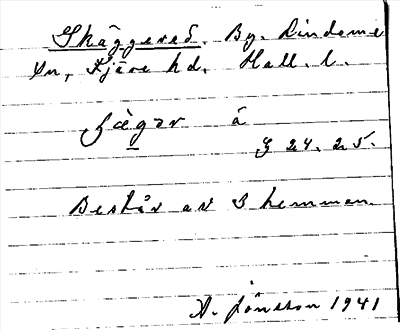 Skäggered. By. Lindome
sn, Fjäre hd. Hall. l.
fægər å
G 24. 25.
Består av 3 hemman.
A. Jönsson 1941